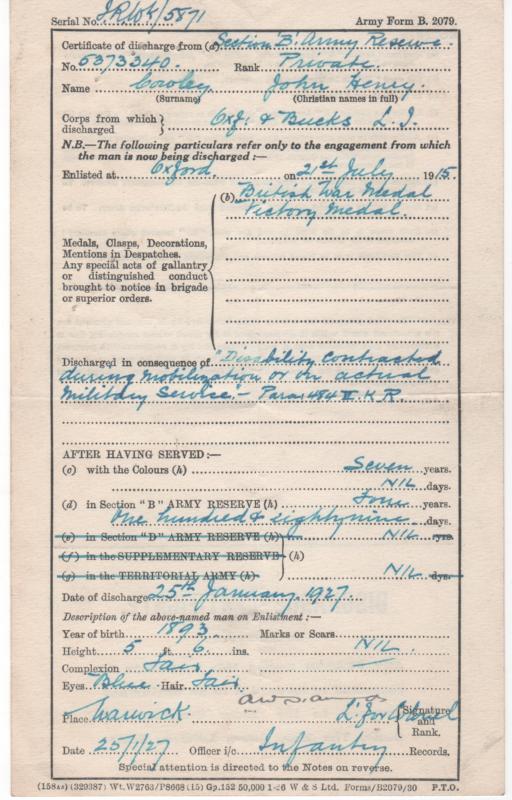 Serial No. /5871 Army Form B. 2079.
Certificate of discharge from (a) Section 'B' Army Reserve.
No. 5373340. Rank Private.
Name Cowley John Henry.
(Surname) (Christian names in full)
Corps from which discharged } Oxf: & Bucks L. I.
N.B.—The following particulars refer only to the engagement from which
the man is now being discharged :—
Enlisted at Oxford. on 21st July 1915.
(b) British War Medal
Victory Medal.
Medals, Clasps, Decorations,
Mentions in Despatches.
Any special acts of gallantry
or distinguished conduct
brought to notice in brigade
or superior orders.
Discharged in consequence of "Disability contracted
during mobilization or on actual
Military Service". – Para: 484 II K.R.
AFTER HAVING SERVED :—
(c) with the Colours (h) Seven years.
NIL days.
(d) in Section "B" ARMY RESERVE (h) Four years.
One hundred & eighty nine days.
(e) in Section "D" ARMY RESERVE (h) NIL yrs.
(f) in the SUPPLEMENTARY RESERVE (h)
(g) in the TERRITORIAL ARMY (h) NIL dys.
Date of discharge 25th January 1927.
Description of the above-named man on Enlistment :—
Year of birth 1893. Marks or Scars
Height 5 ft. 6 ins. NIL.
Complexion Fair
Eyes Blue. Hair Fair
Place Warwick. Lt for Colonel { Signature and Rank.
Date 25/1/27 Officer i/c Infantry Records.
Special attention is directed to the Notes on reverse.
(329387) Wt.W2763/P8668 (15) Gp.152 50,000 1-26 W & S Ltd. Forms/B2079/30 P.T.O.